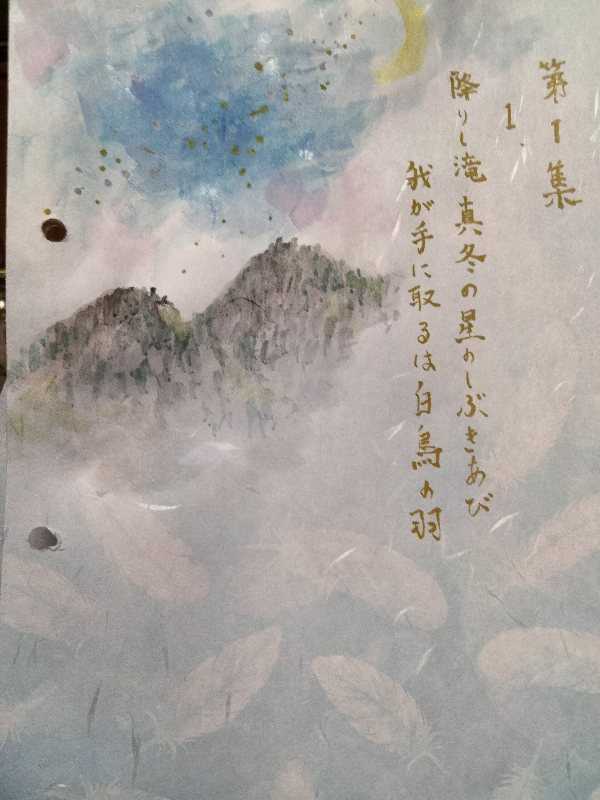 第1集
1.
降りし滝真冬の星のしぶきあび
我が手に取るは白鳥の羽